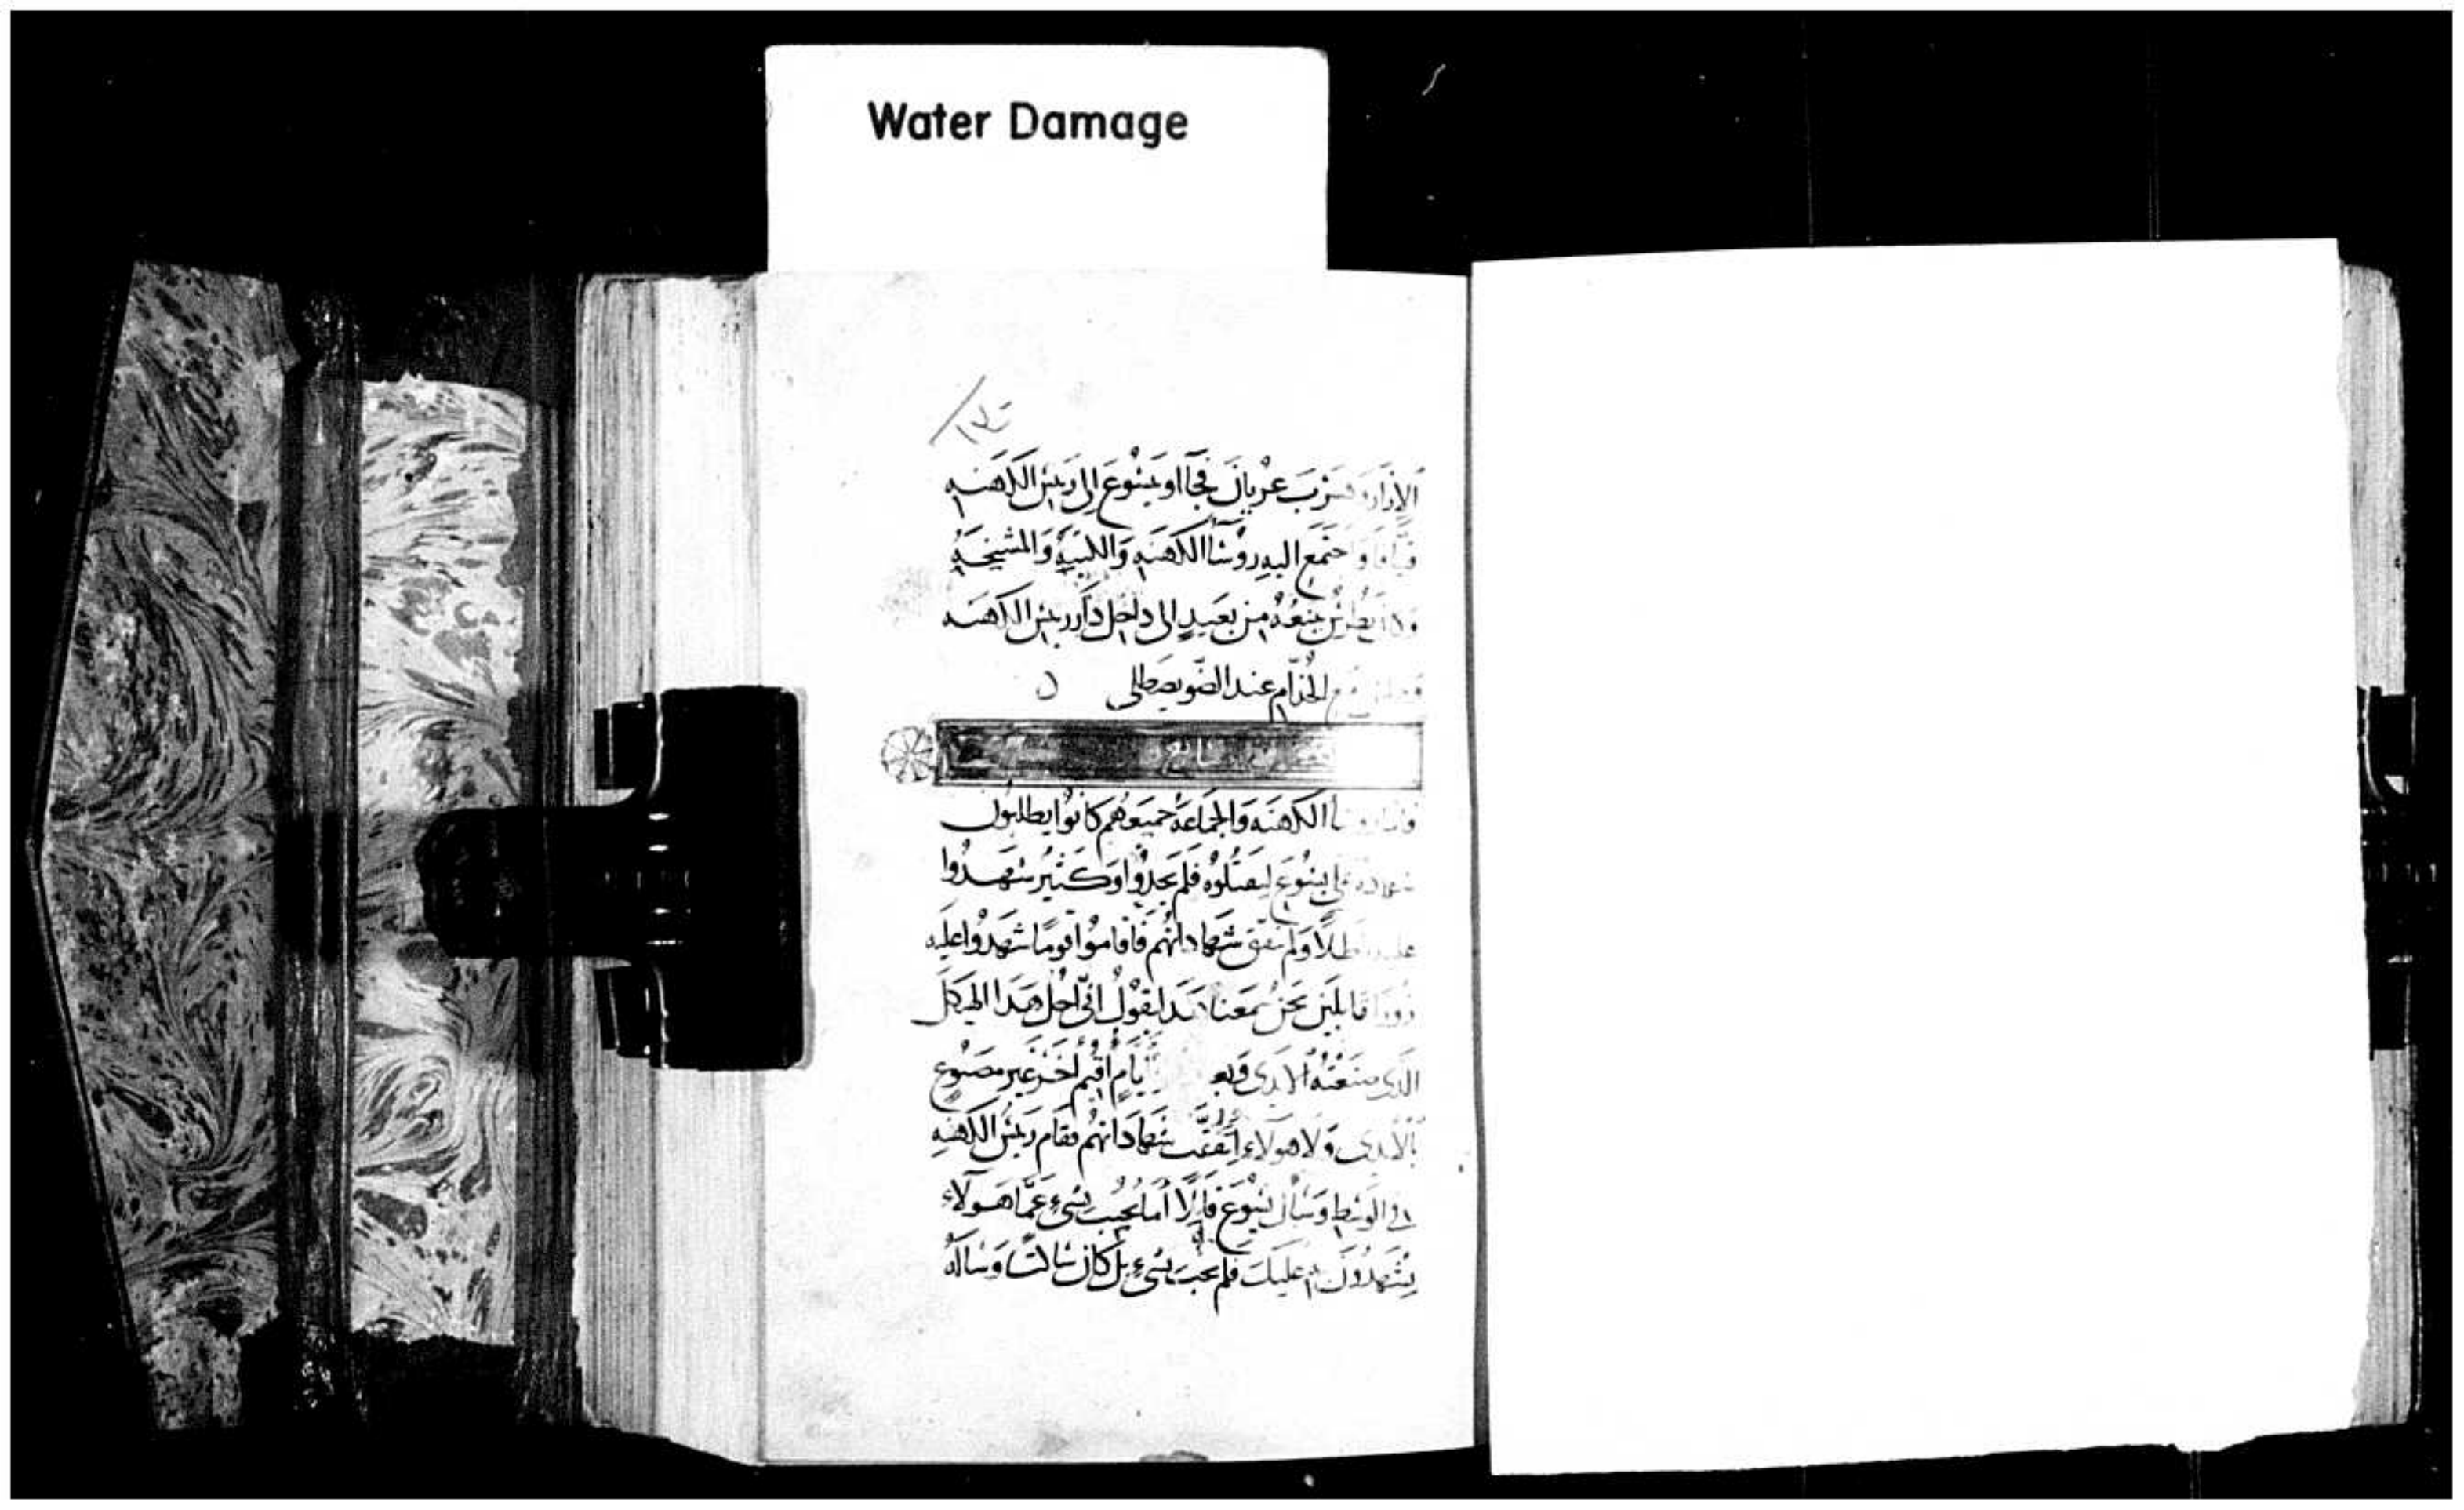 Water Damage
الازار وهرب عريان فجاا وبيسوع الى ريس الكهنه
قيافا واجتمع اليه روسا الكهنه والكتبه والمشيخه
بطرس يتبعه من بعيد الى داخل دار ريس الكهنه
الخدام عند الضو يصطلى
الكهنه والجماعه جميعهم كانوا يطلبون
يسوع ليقتلوه فلم يجدوا وكثير شهدوا
ولم تتفق شهاداتهم فاقاموا قوما شهدوا عليه
زورا قايلين نحن سمعنا هدا يقول انى احل هدا الهيكل
الدى صنعته الايدى وبعد ايام اقيم اخر غير مصنوع
بالايدى ولا هولاء اتفقت شهاداتهم فقام ريس الكهنه
فى الوسط وسال يسوع قايلا اما تجيب بشىء عما هولاء
يشهدون به عليك فلم يجب بشىء بل كان ساكتا وساله